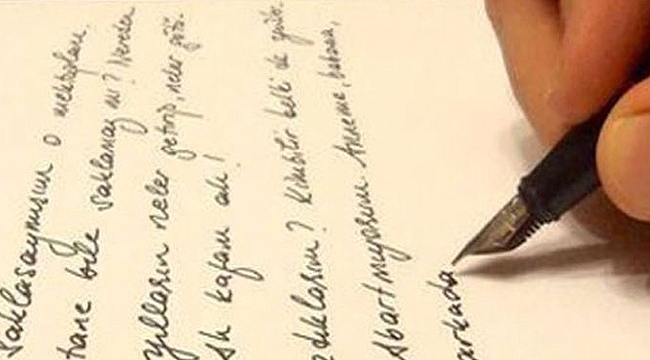 saklasaymışım o mektupları.
tane bile saklanmaz mı? Nereden
yılların neler getirip, neler götü
Ah kafam ah!
dıklarım? Kimbilir belki de
Abartmıyorum. Anneme, babama,
arkada